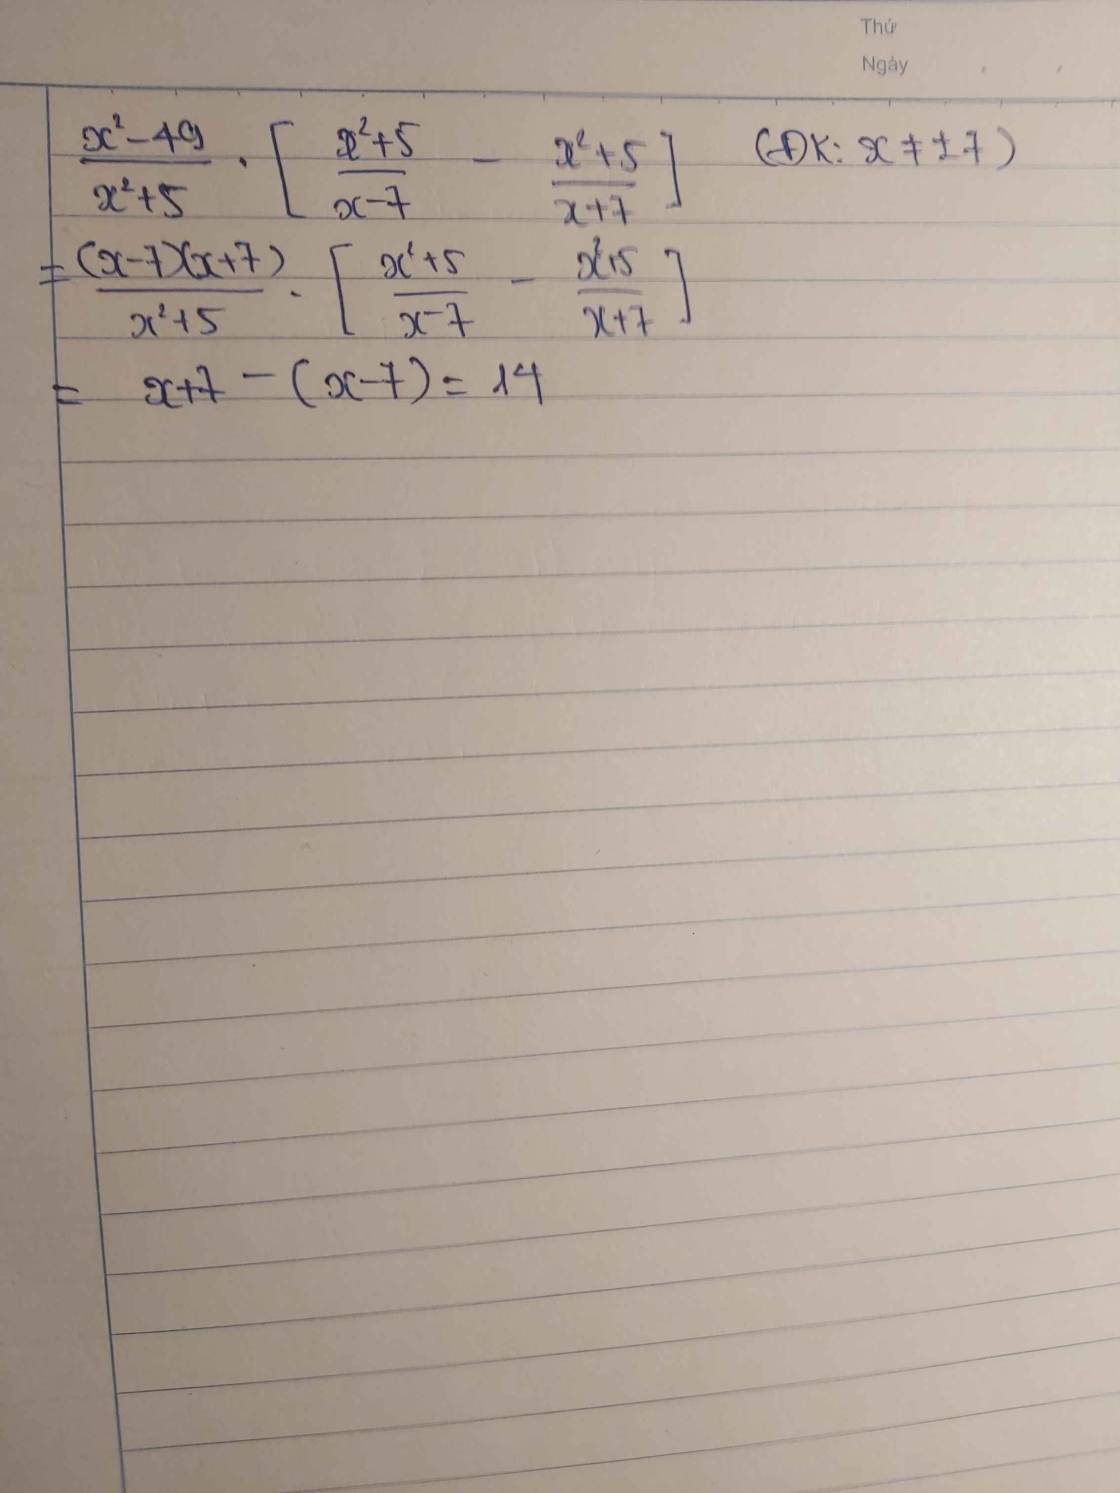 Thứ
Ngày
(x²-49)/(x²+5) . [ (x²+5)/(x-7) - (x²+5)/(x+7) ] (ĐK: x ≠ ±7)
= ((x-7)(x+7))/(x²+5) . [ (x²+5)/(x-7) - (x²+5)/(x+7) ]
= x+7 - (x-7) = 14